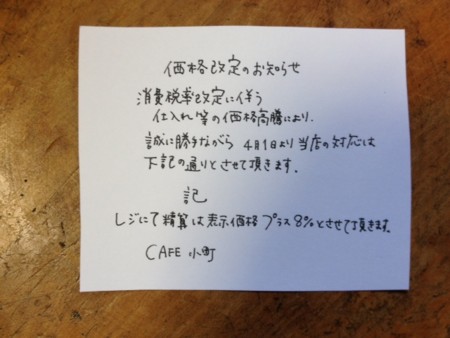 価格改定のお知らせ
消費税率改定に伴う
仕入れ等の価格高騰により、
誠に勝手ながら 4月1日より当店の対応は
下記の通りとさせて頂きます。
記
レジにて精算は表示価格プラス8%とさせて頂きます。
CAFE 小町